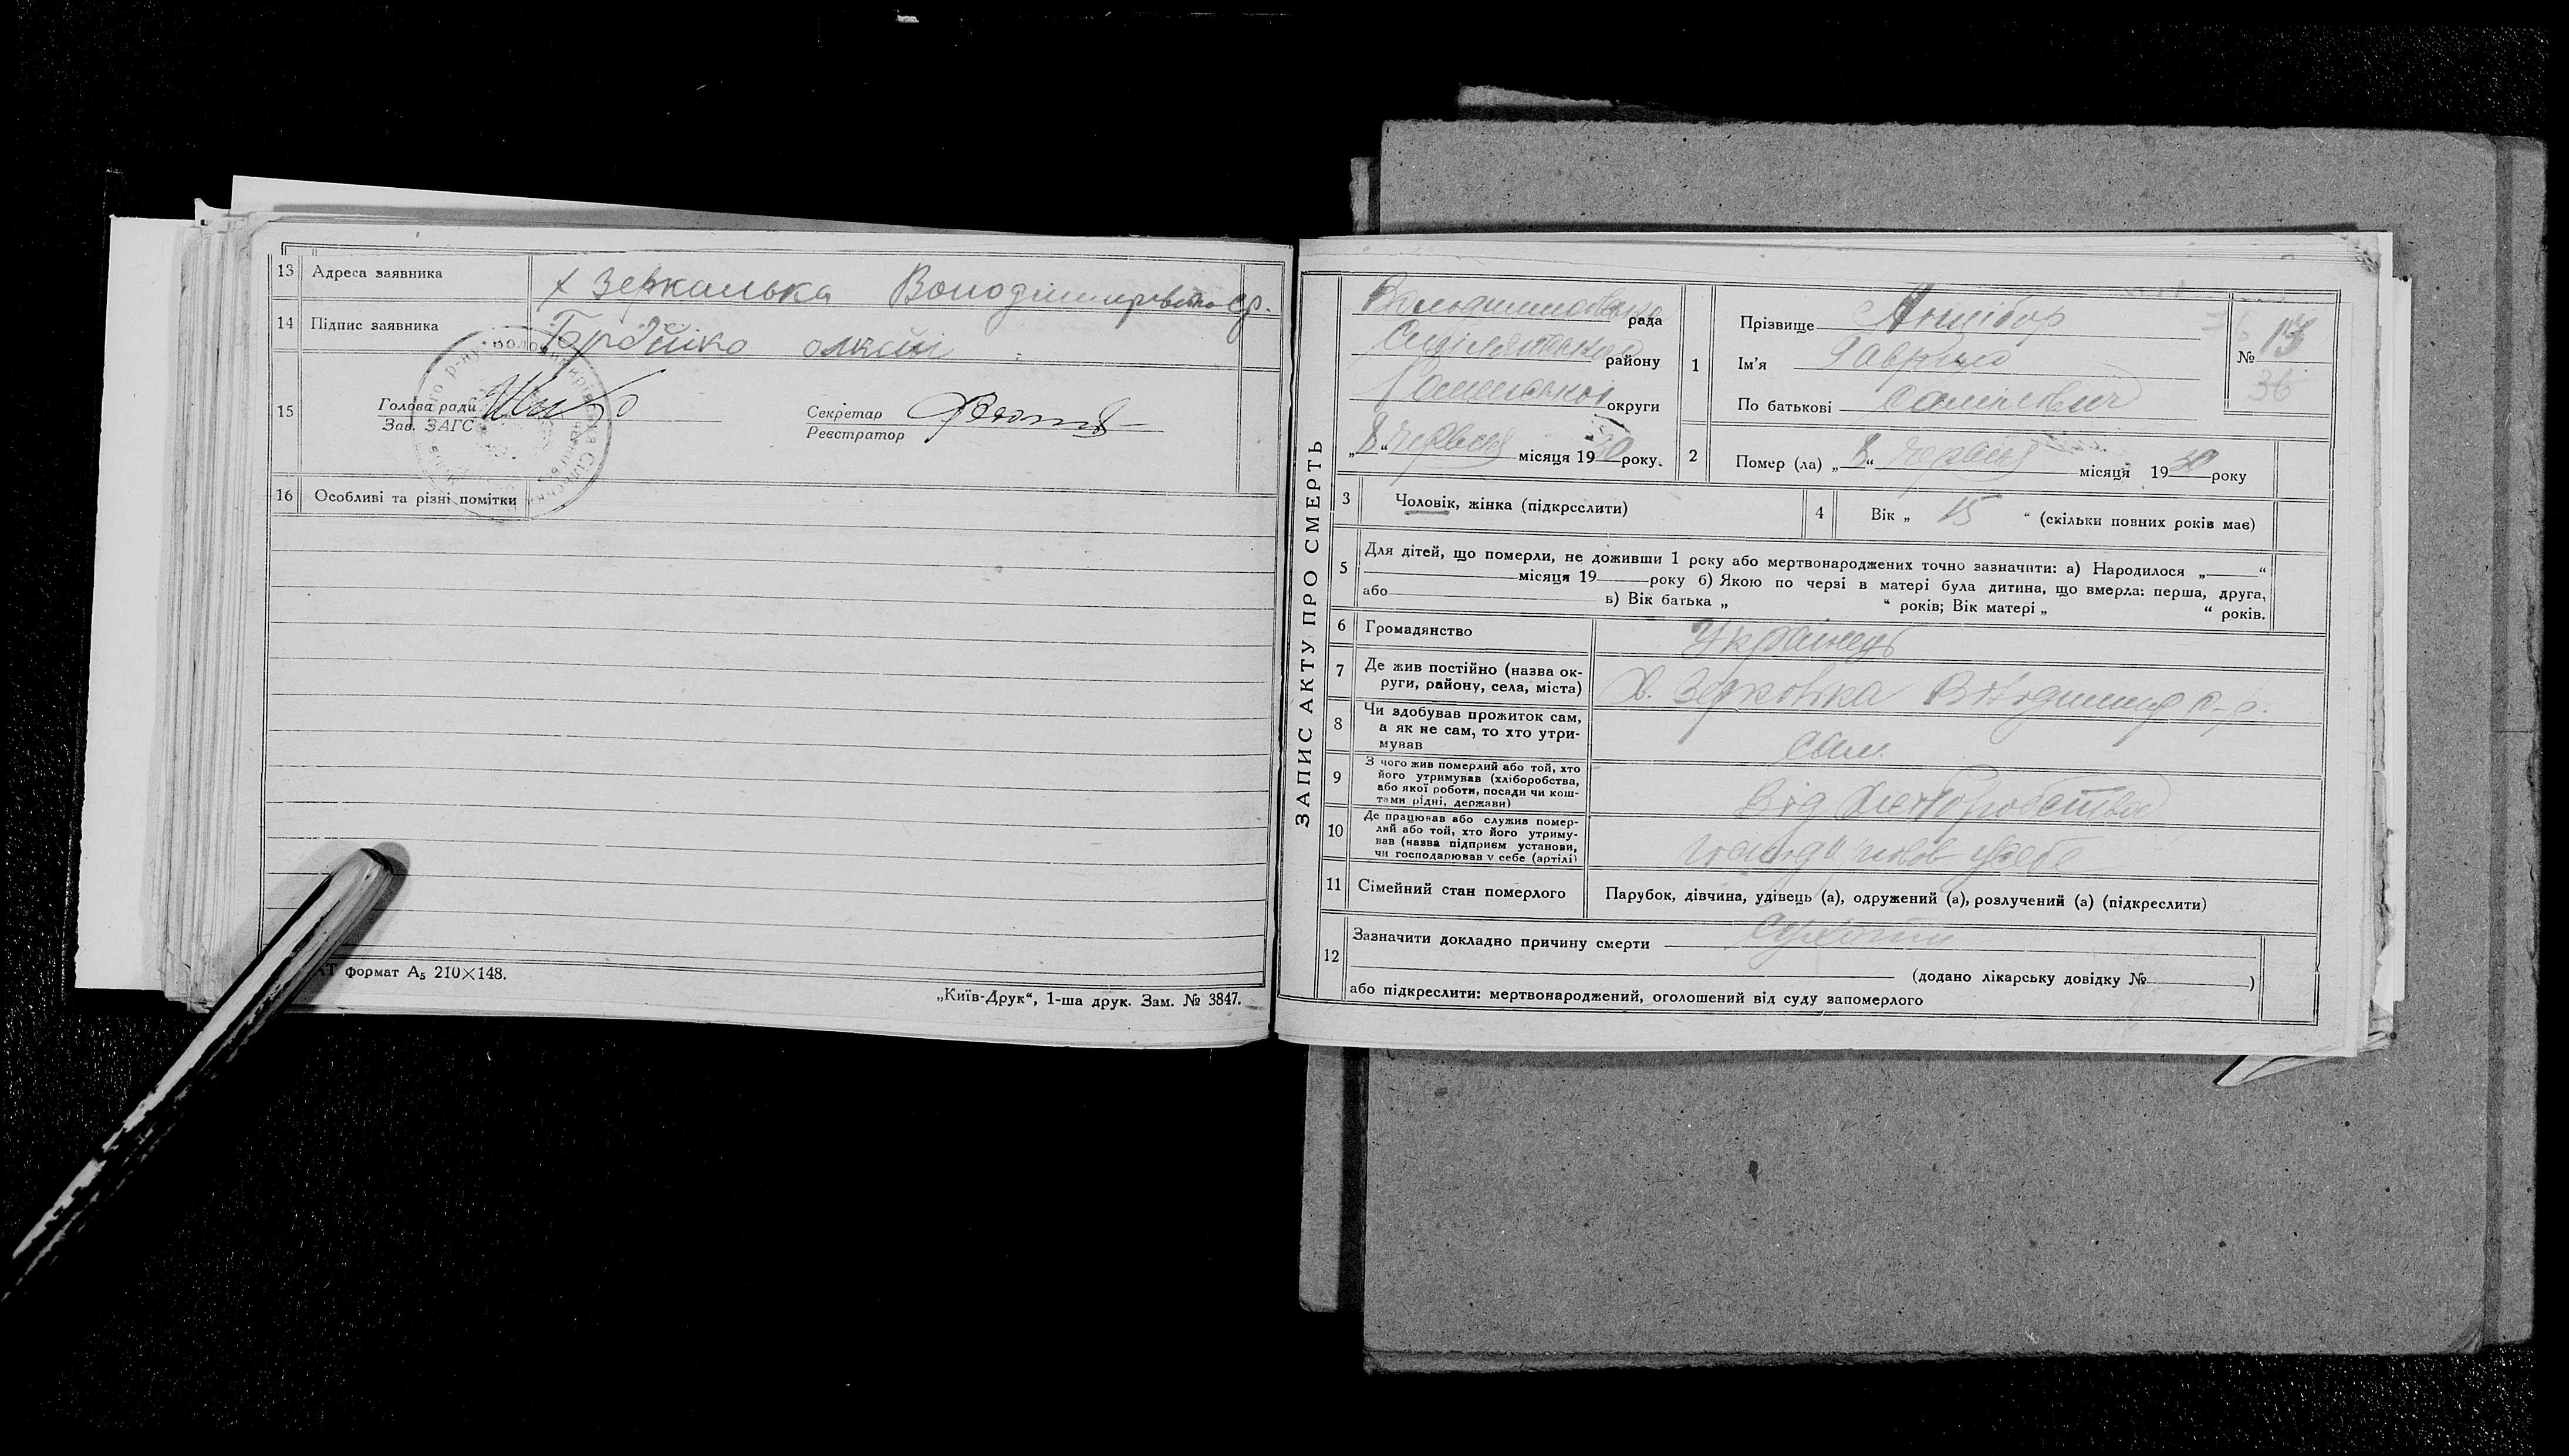 13 Адреса заявника х Зеркалька Володимирівсько ср.
14 Підпис заявника
15 Голова ради
Зав. ЗАГС
Секретар
Реєстратор
16 Особливі та різні помітки
формат А₅ 210×148.
„Київ-Друк“, 1-ша друк. Зам. № 3847.
ЗАПИС АКТУ ПРО СМЕРТЬ
рада
району
округи
„8“ червня місяця 1930 року.
1 Прізвище Анцібор
Ім'я Гаврило
По батькові
№ 13
36
2 Помер (ла) „8“ червня місяця 1930 року
3 Чоловік, жінка (підкреслити)
4 Вік „ 15 “ (скільки повних років має)
5 Для дітей, що померли, не доживши 1 року або мертвонароджених точно зазначити: а) Народилося „ “
місяця 19 року б) Якою по черзі в матері була дитина, що вмерла: перша, друга,
або в) Вік батька „ “ років; Вік матері „ “ років.
6 Громадянство Українець
7 Де жив постійно (назва ок-
руги, району, села, міста) х. Зерковка
8 Чи здобував прожиток сам,
а як не сам, то хто утри-
мував сам
9 З чого жив померлий або той, хто
його утримував (хліборобства,
або якої роботи, посади чи кош-
тами рідні, держави) Від хліборобства
10 Де працював або служив помер-
лий або той, хто його утриму-
вав (назва підприєм установи,
чи господарював у себе (артілі) у себе
11 Сімейний стан померлого Парубок, дівчина, удівець (а), одружений (а), розлучений (а) (підкреслити)
12 Зазначити докладно причину смерти
(додано лікарську довідку № )
або підкреслити: мертвонароджений, оголошений від суду запомерлого